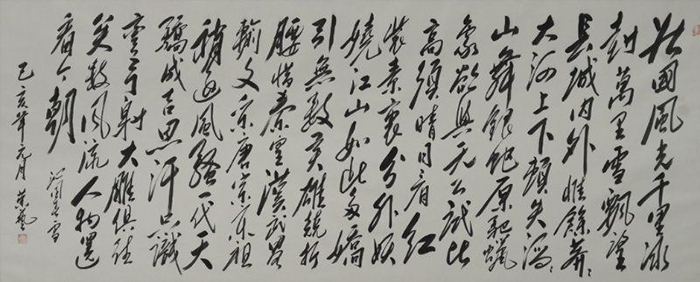 北国风光千里冰
封万里雪飘望
长城内外惟馀莽莽
大河上下顿失滔滔
山舞银蛇原驰蜡
象欲与天公试比
高须晴日看红
装素裹分外妖
娆江山如此多娇
引无数英雄竞折
腰惜秦皇汉武略
输文采唐宗宋祖
稍逊风骚一代天
骄成吉思汗只识
弯弓射大雕俱往
矣数风流人物还
看今朝
沁园春雪
己亥年元月